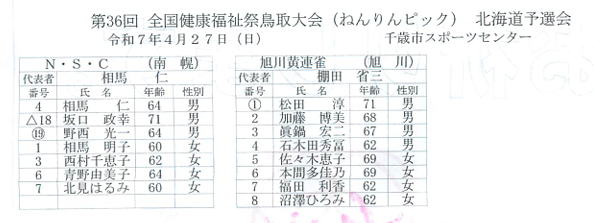 第36回 全国健康福祉祭鳥取大会（ねんりんピック） 北海道予選会
令和７年４月２７日（日） 千歳市スポーツセンター
Ｎ・Ｓ・Ｃ （南 幌）
代表者 相馬 仁
番号 氏 名 年齢 性別
4 相馬 仁 64 男
△18 坂口 政幸 71 男
⑲ 野西 光一 64 男
1 相馬 明子 60 女
3 西村千恵子 62 女
6 青野由美子 64 女
7 北見はるみ 60 女
旭川黄連雀 （旭 川）
代表者 棚田 省三
番号 氏 名 年齢 性別
① 松田 淳 71 男
2 加藤 博美 68 男
3 眞鍋 宏二 67 男
4 石木田秀富 62 男
5 佐々木恵子 69 女
6 本間多佳乃 69 女
7 福田 利香 62 女
8 沼澤ひろみ 62 女